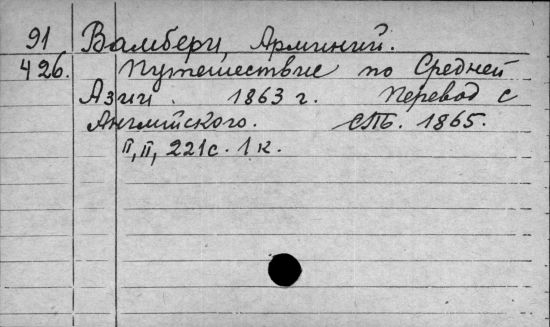 91 Вамбери, Арминий.
426. Путешествие по Средней
Азии. 1863 г. Перевод с
Английского. СПБ. 1865.
II, II, 221 с. 1 к.